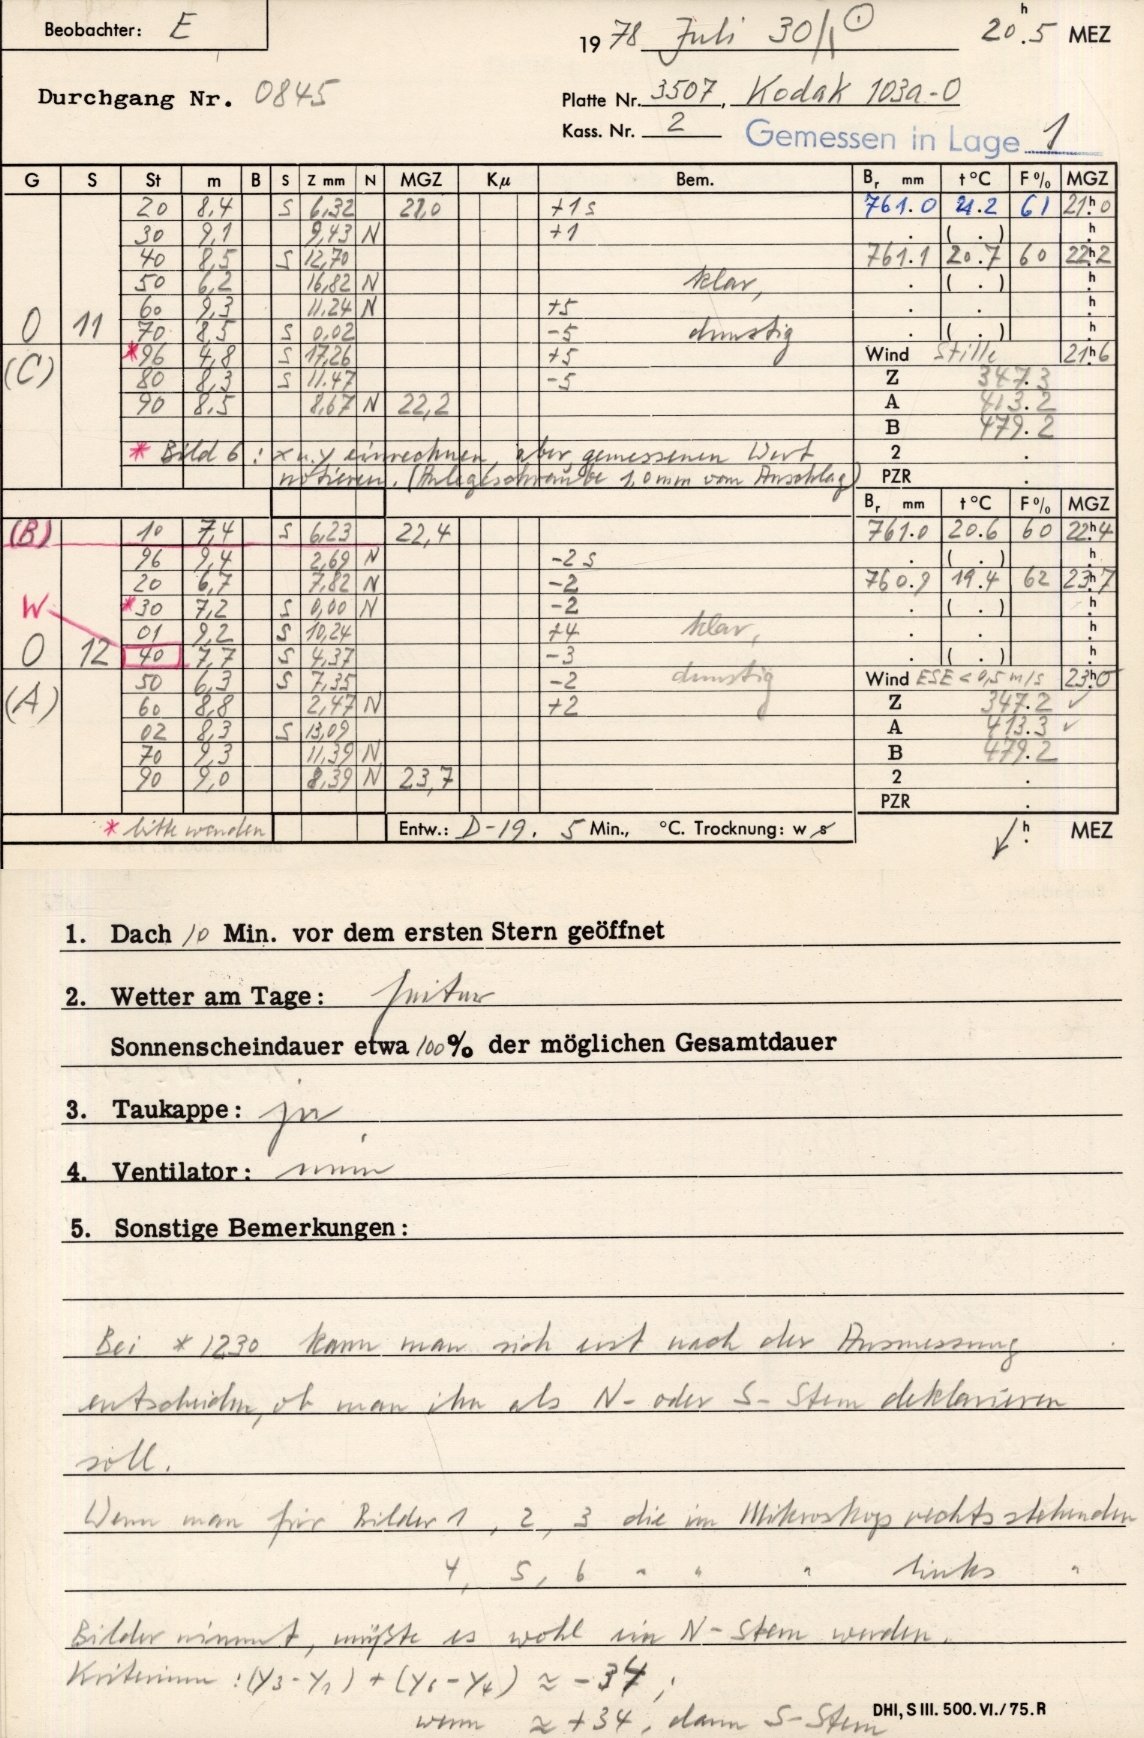 Beobachter: E
1978 Juli 30/1 ☉ 20h.5 MEZ
Durchgang Nr. 0845
Platte Nr. 3507, Kodak 103a-O
Kass. Nr. 2
Gemessen in Lage 1
G S St m B S Z mm N MGZ Kμ Bem. Br mm t°C F% MGZ
20 8,4 S 6,32 21,0 +1 s 761.0 21.2 61 21h0
30 9,1 9,43 N +1 . ( . ) h
40 8,5 S 12,70 761.1 20.7 60 22h2
50 6,2 16,82 N klar, . ( . ) h
60 9,3 11,24 N +5 . . h
0 11 70 8,5 S 0,02 -5 dunstig . ( . ) h
(C) *96 4,8 S 17,26 +5 Wind Stille 21h6
80 8,3 S 11.47 -5 Z 347.3
90 8,5 8,67 N 22,2 A 413.2
B 479.2
* Bild 6: x u. y einrechnen, aber gemessenen Wert 2 .
notieren. (Anlegeschraube 1,0mm vom Anschlag) PZR .
Br mm t°C F% MGZ
(B) 10 7,4 S 6,23 22,4 761.0 20.6 60 22h4
96 9,4 2,69 N -2 s . ( . ) h
20 6,7 7,82 N -2 760.9 19.4 62 23h7
*30 7,2 S 0,00 N -2 . ( . ) h
W 01 9,2 S 10,24 +4 klar, . . h
0 12 40 7,7 S 4,37 -3 . ( . ) h
(A) 50 6,3 S 7,35 -2 dunstig Wind ESE < 0,5 m/s 23h0
60 8,8 2,47 N +2 Z 347.2 ✓
02 8,3 S 13,09 A 413.3 ✓
70 9,3 11,39 N B 479.2
90 9,0 8,39 N 23,7 2 .
PZR .
* bitte wenden Entw.: D-19. 5 Min., °C. Trocknung: w s h. MEZ
1. Dach 10 Min. vor dem ersten Stern geöffnet
2. Wetter am Tage: heiter
Sonnenscheindauer etwa 100% der möglichen Gesamtdauer
3. Taukappe: ja
4. Ventilator: nein
5. Sonstige Bemerkungen:
Bei * 1230 kann man sich erst nach der Ausmessung
entscheiden, ob man ihn als N- oder S-Stern deklarieren
soll.
Wenn man für Bilder 1, 2, 3 die im Mikroskop rechts stehenden
4, 5, 6 " " " links "
Bilder nimmt, müßte es wohl ein N-Stern werden.
Kriterium: (y3-y1) + (y6-y4) ≈ -34;
wenn ≈ +34, dann S-Stern
DHI, S III. 500. VI./75. R